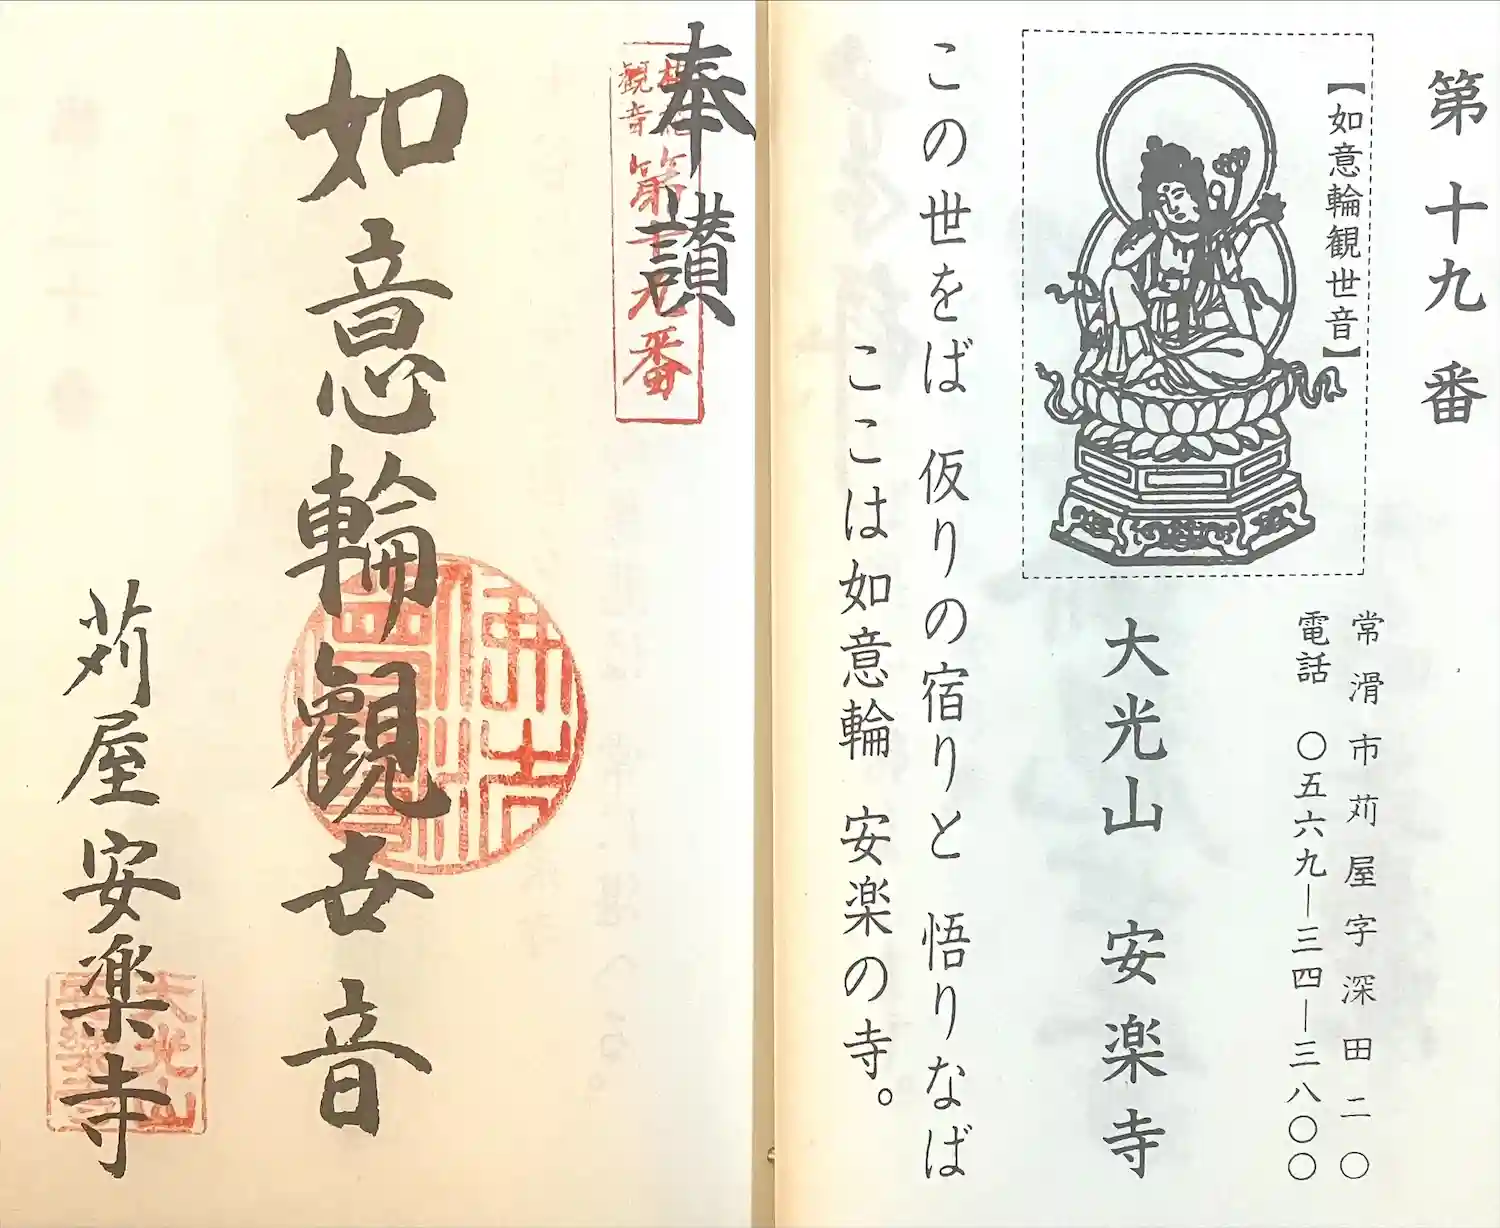 第十九番
【如意輪観世音】
常滑市苅屋字深田二〇
電話 〇五六九―三四―三八〇〇
大光山 安楽寺
この世をば 仮りの宿りと 悟りなば
ここは如意輪 安楽の寺。
奉讃
観音
第十九番
如意輪觀世音
苅屋安楽寺
大光山
安楽寺